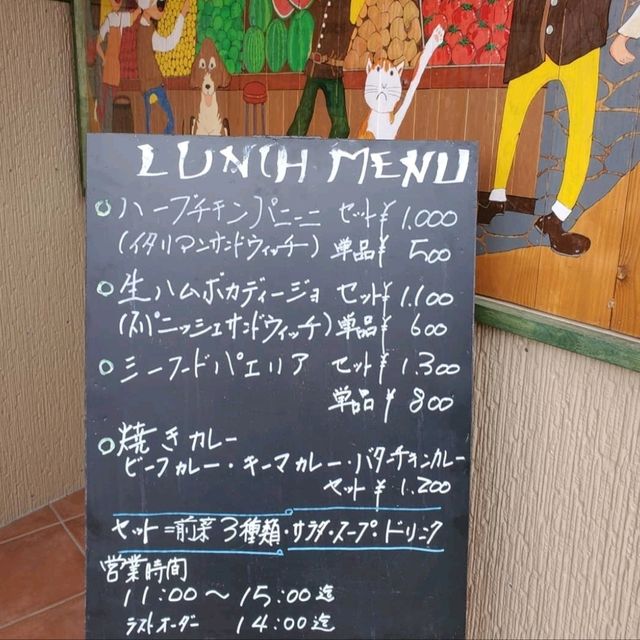 LUNCH MENU
○ ハーブチキンパニーニ セット¥ 1,000
(イタリアンサンドウィッチ) 単品¥ 500
○ 生ハムボカディージョ セット¥ 1,100
(スパニッシュサンドウィッチ) 単品¥ 600
○ シーフードパエリア セット¥ 1,300
単品¥ 800
○ 焼きカレー
ビーフカレー・キーマカレー・バターチキンカレー
セット ¥ 1,200
セット=前菜3種類・サラダ・スープ・ドリンク
営業時間
11:00〜15:00迄
ラストオーダー 14:00迄